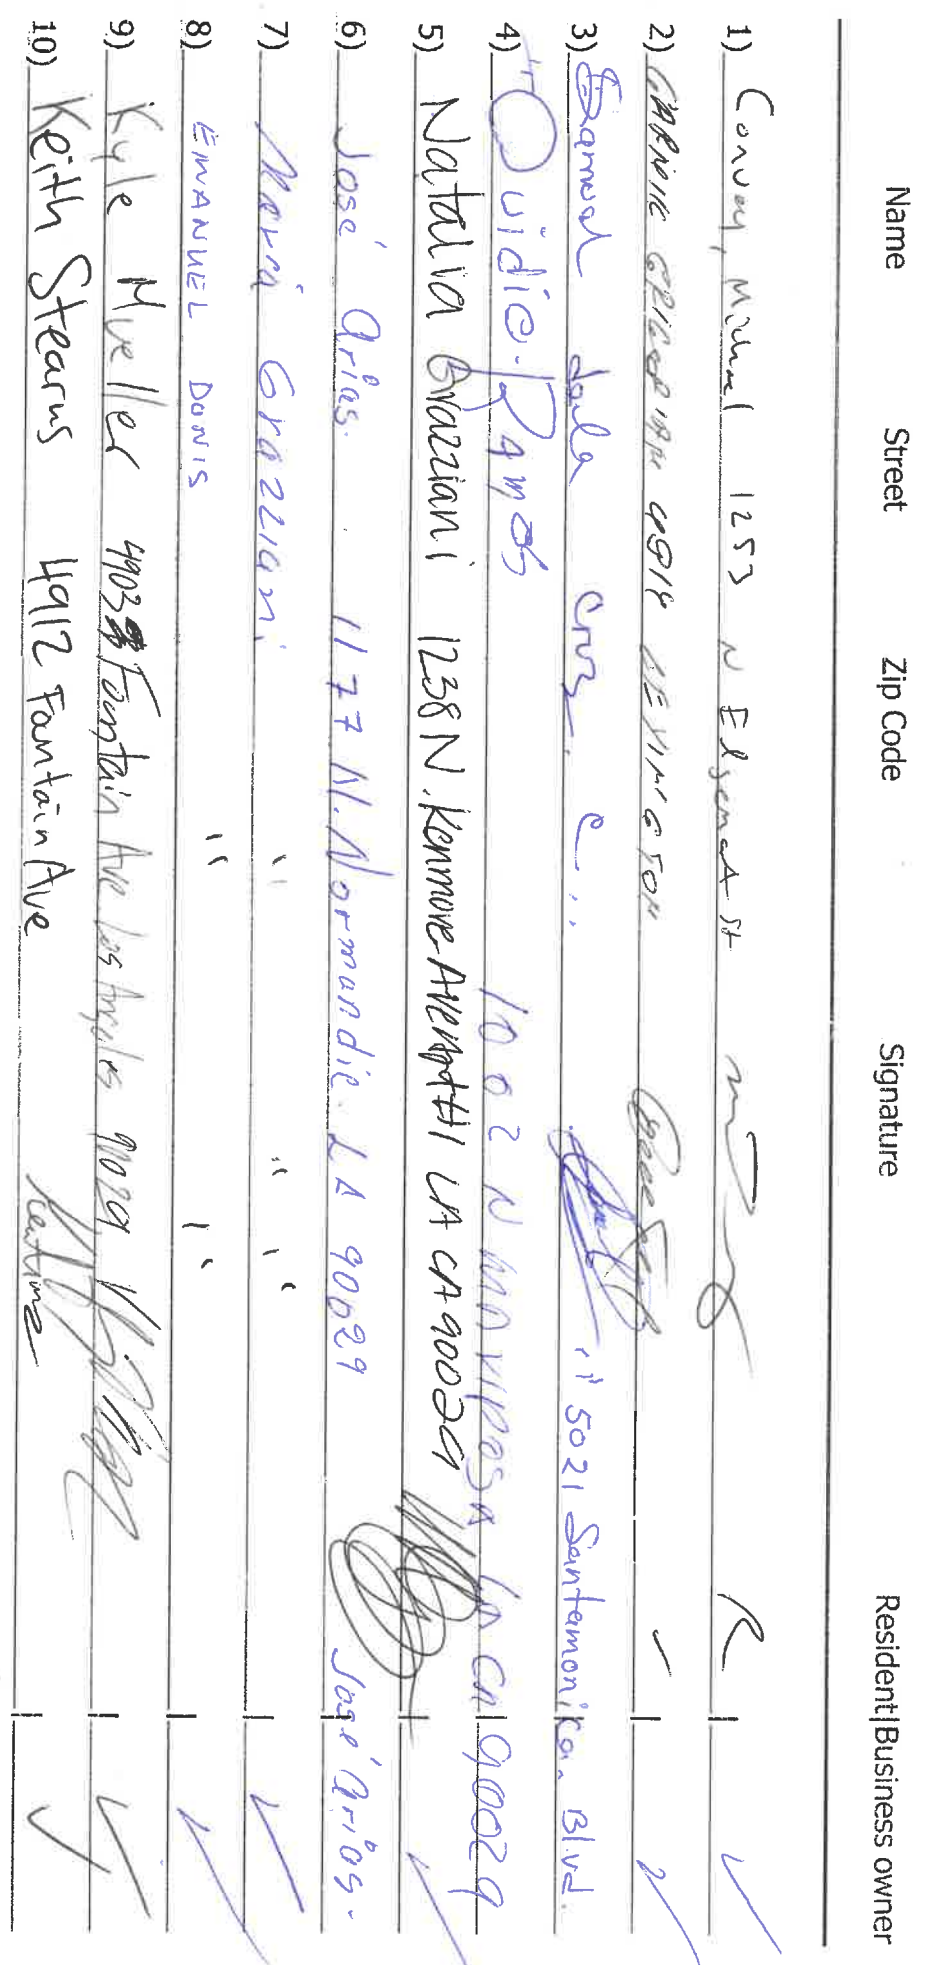 Name Street Zip Code Signature Resident|Business owner
1) Conway, Michael 1253 N Edgemont St R
2) LEXINGTON
3) Samuel dela Cruz. 5021 Santamonica Blvd.
4) Ouidio Ramos 1002 N Mariposa LA CA 90029
5) Natalia Grazziani 1238 N. Kenmore Ave Apt#1 LA CA 90029
6) José Arias. 1177 N. Normandie. LA 90029 José Arias.
7) Maria Grazziani " " "
8) EMANUEL DONIS " "
9) Kyle Mueller 4903 Fountain Ave Los Angeles 90029
10) Keith Stearns 4912 Fountain Ave